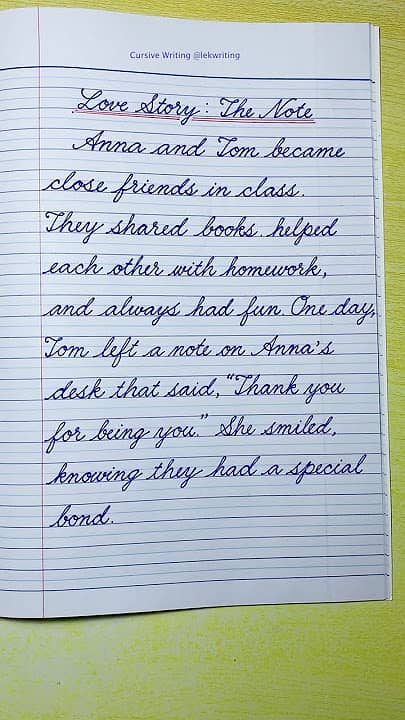 Cursive Writing @lekwriting
Love Story: The Note
Anna and Tom became
close friends in class.
They shared books. helped
each other with homework,
and always had fun. One day,
Tom left a note on Anna's
desk that said, "Thank you
for being you." She smiled,
knowing they had a special
bond.